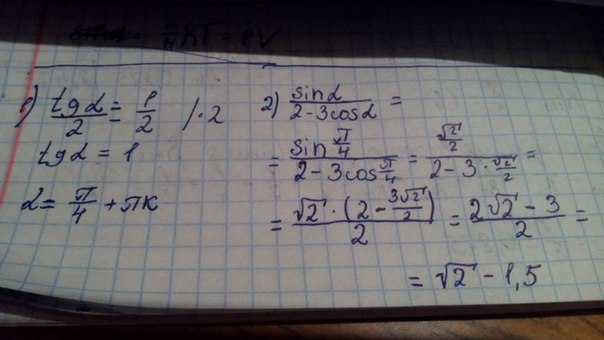 RT = PV
1) tg α / 2 = 1 / 2 / · 2
tg α = 1
α = π/4 + πk
2) sin α / (2 - 3 cos α) =
= sin π/4 / (2 - 3 cos π/4) = (√2/2) / (2 - 3 · √2/2) =
= √2 · (2 - 3√2/2) / 2 = (2√2 - 3) / 2 =
= √2 - 1,5